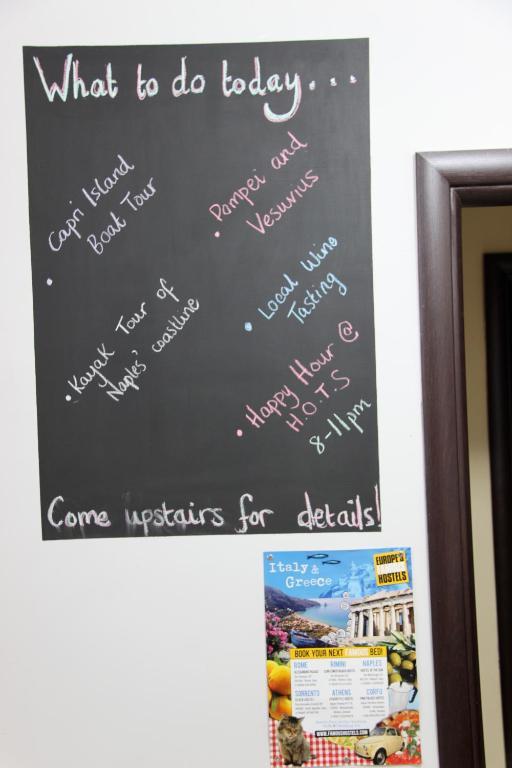 What to do today...
Capri Island
Boat Tour
Pompei and
Vesuvius
Kayak Tour of
Naples' coastline
Local Wine
Tasting
Happy Hour @
H.O.T.S
8-11pm
Come upstairs for details!
Italy &
Greece
EUROPE'S
HOSTELS
BOOK YOUR NEXT FAMOUS BED!
ROME
RIMINI
NAPLES
SORRENTO
ATHENS
CORFU
WWW.FAMOUSHOSTELS.COM